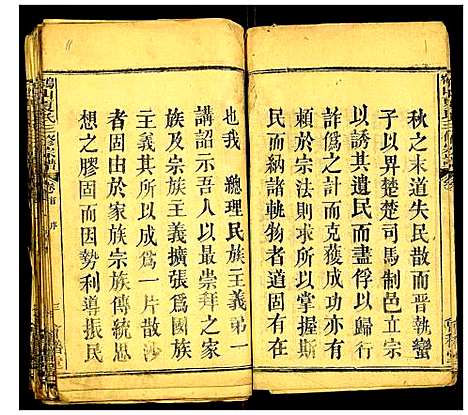 秋之末道失民散而晉執蠻
子以畀楚楚司馬制邑立宗
以誘其遺民而盡俘以歸行
詐僞之計而克獲成功亦有
賴於宗法則求所以掌握斯
民而納諸軌物者道固有在
也我 總理民族主義第一
講詔示吾人以最崇拜之家
族及宗族主義擴張爲國族
主義其所以成爲一片散沙
者固由於家族宗族傳統思
想之膠固而因勢利導振民